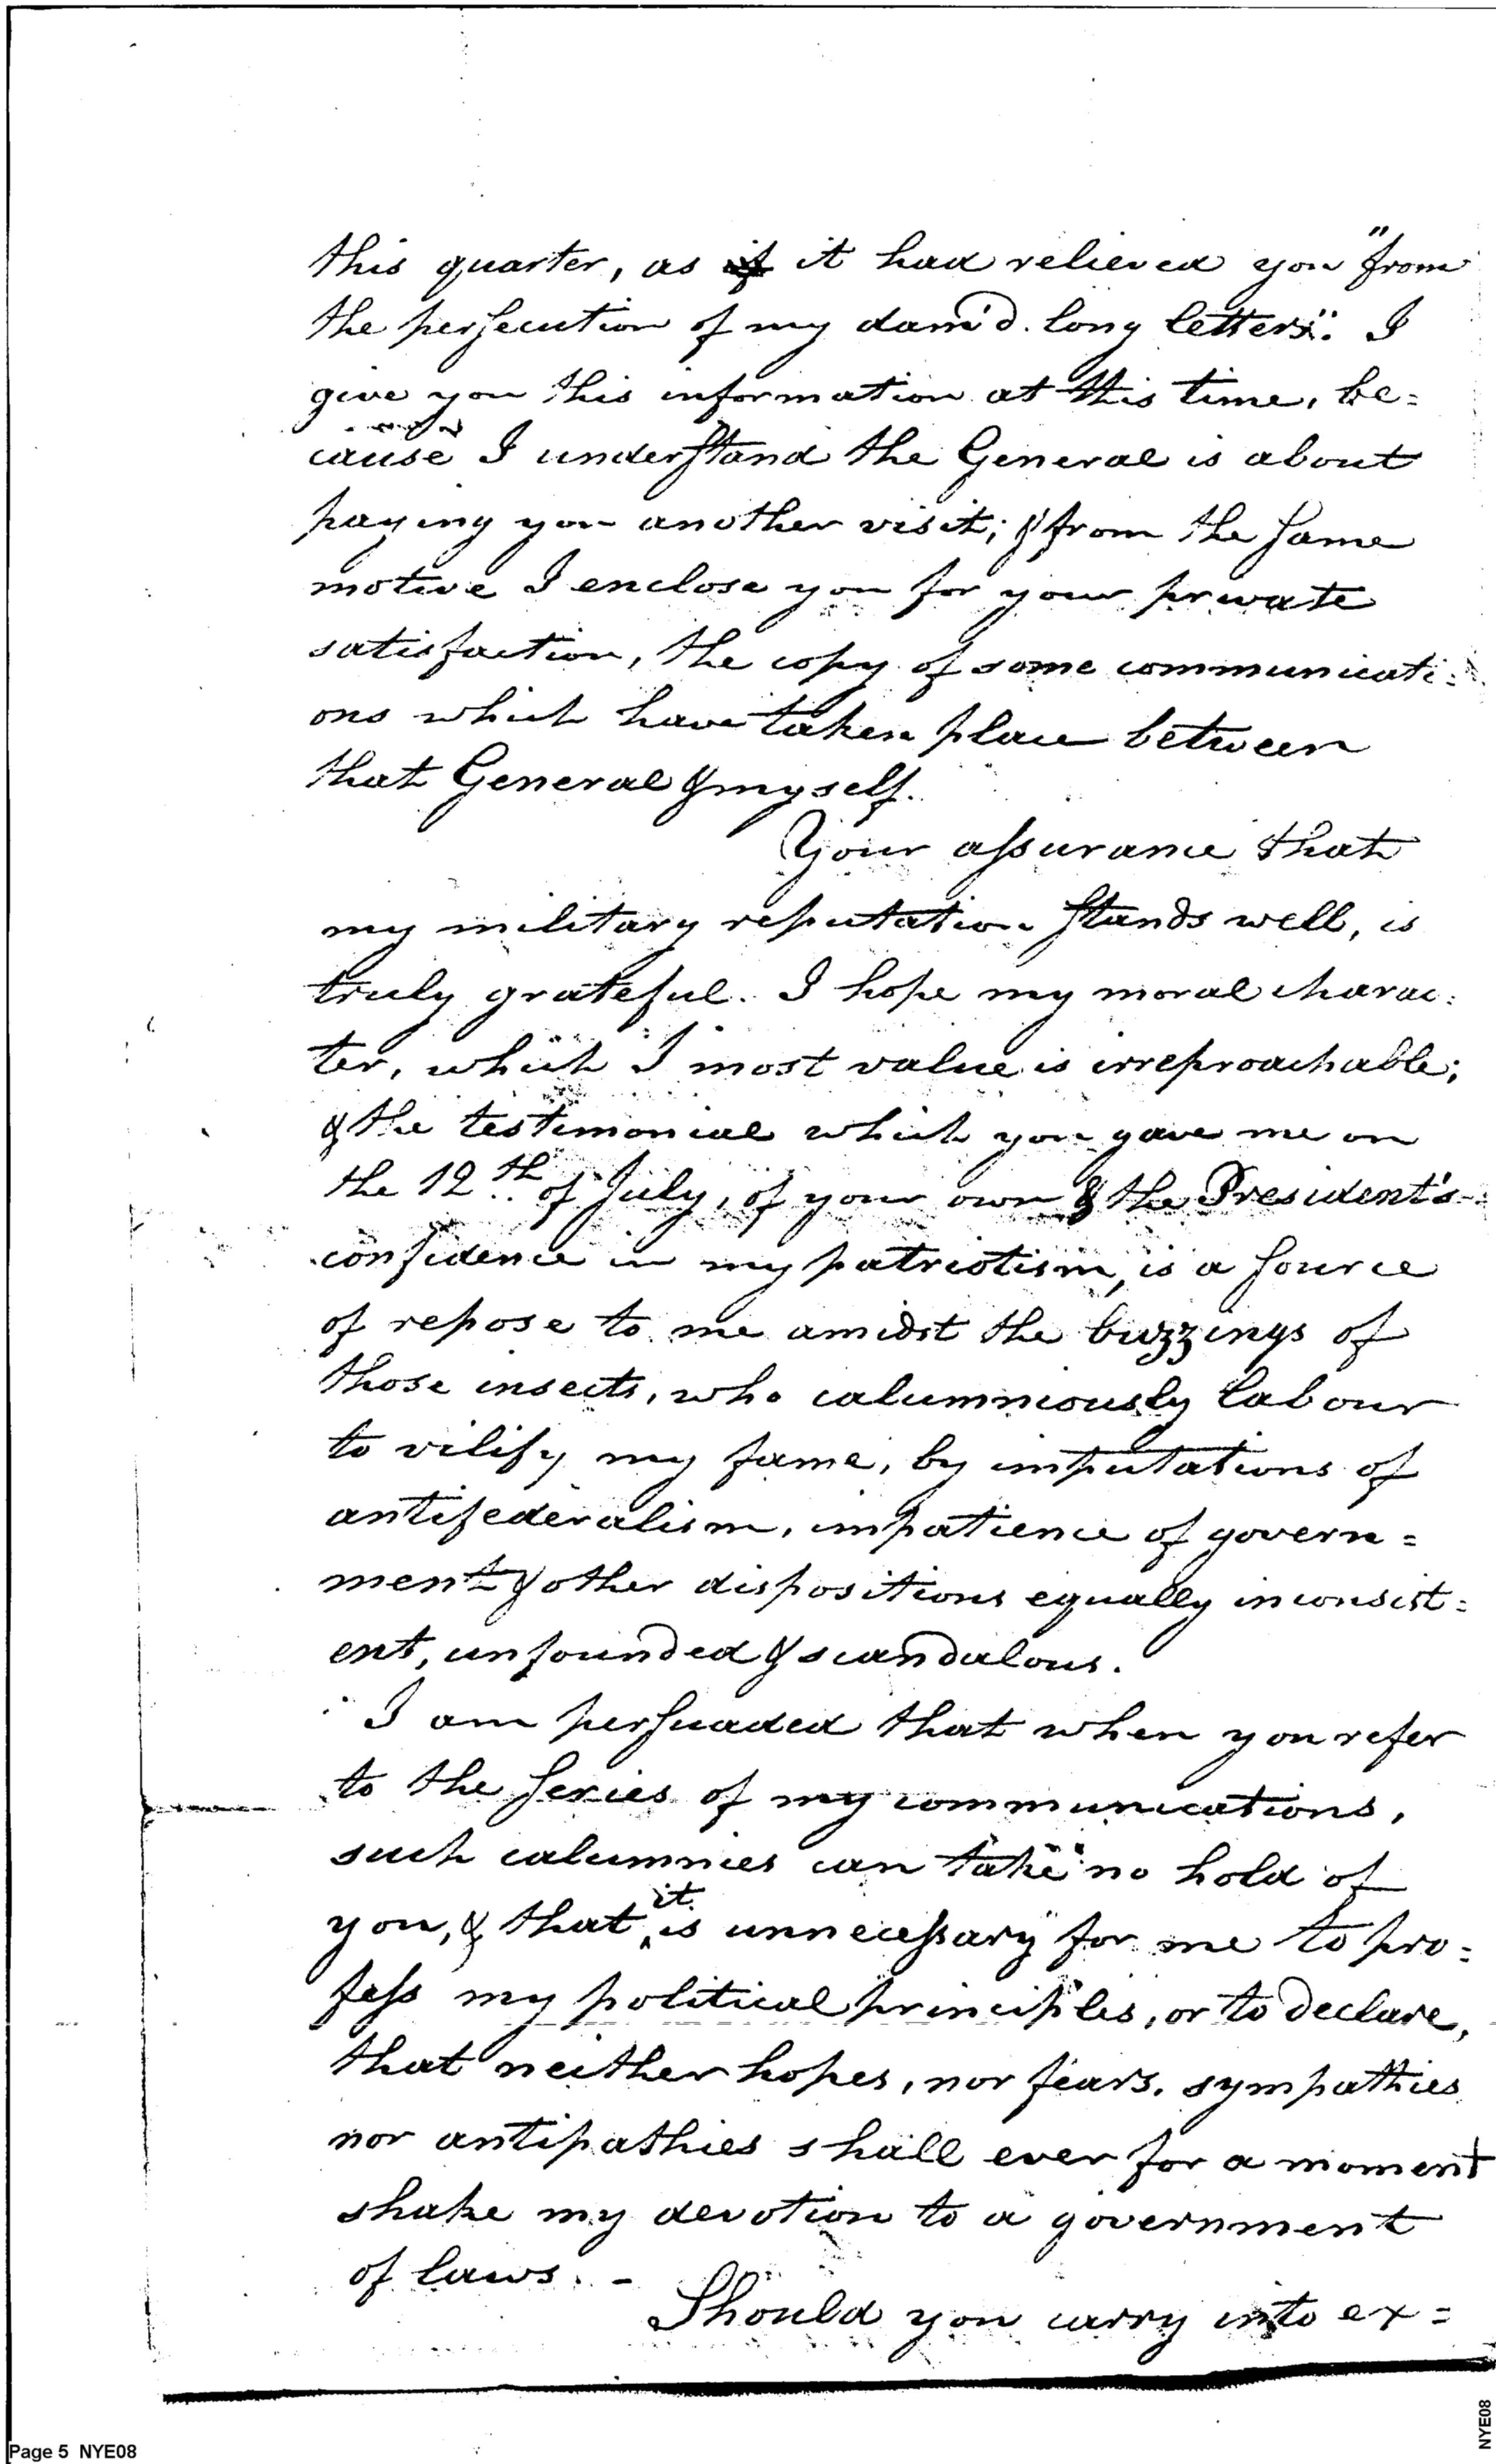 this quarter, as if it had relieved you "from
the persecution of my dam'd. long letters". I
give you this information at this time, be=
cause I understand the General is about
paying you another visit; & from the same
motive I enclose you for your private
satisfaction, the copy of some communicati=
ons which have taken place between
that General & myself.
Your assurance that
my military reputation stands well, is
truly grateful. I hope my moral charac=
ter, which I most value is irreproachable;
& the testimonial which you gave me on
the 12th of July, of your own & the President's
confidence in my patriotism, is a source
of repose to me amidst the buzzings of
those insects, who calumniously labour
to vilify my fame, by imputations of
antifederalism, impatience of govern=
ment & other dispositions equally inconsist=
ent, unfounded & scandalous.
I am persuaded that when you refer
to the series of my communications,
such calumnies can take no hold of
you, & that it is unnecessary for me to pro=
fess my political principles, or to declare,
that neither hopes, nor fears, sympathies
nor antipathies shall ever for a moment
shake my devotion to a government
of laws. -
Should you carry into ex=
Page 5 NYE08
NYE08